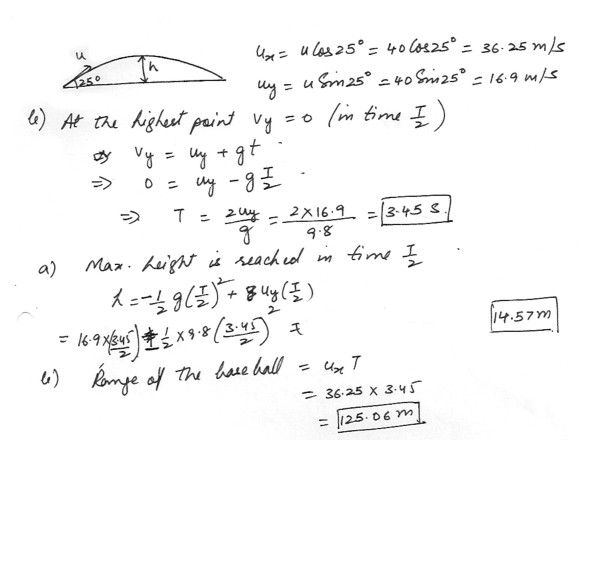 u
h
25°
ux = u Cos 25° = 40 Cos 25° = 36.25 m/s
uy = u Sin 25° = 40 Sin 25° = 16.9 m/s
b) At the highest point vy = 0 (in time T/2)
vy = uy + gt
=> 0 = uy - g T/2
=> T = 2uy/g = 2×16.9/9.8 = 3.45 S.
a) Max. height is reached in time T/2
h = -1/2 g(T/2)² + uy(T/2)
= 16.9×(3.45/2) 1/2 ×9.8(3.45/2)²
14.57m
Range of the baseball = ux T
= 36.25 × 3.45
= 125.06 m